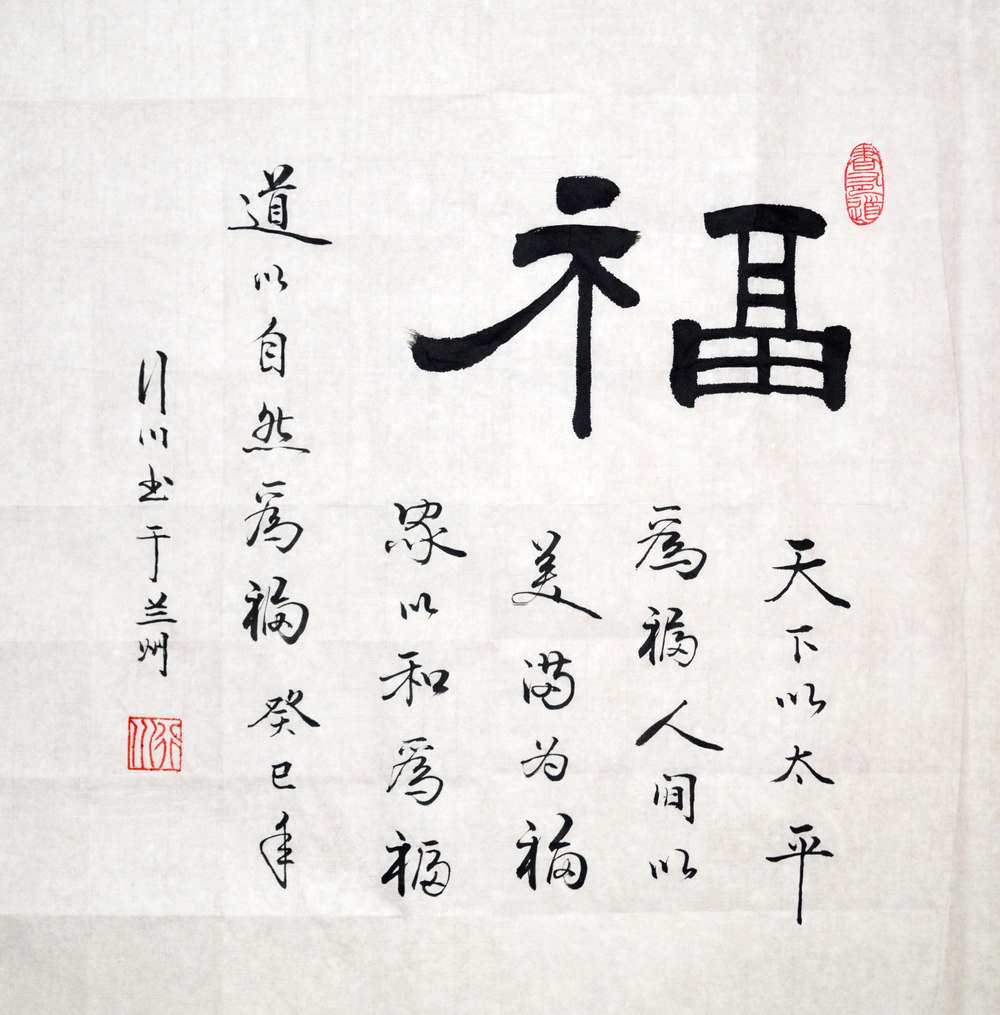 福
天下以太平
為福人间以
美满为福
家以和為福
道以自然為福 癸巳年
行川书于兰州
行川